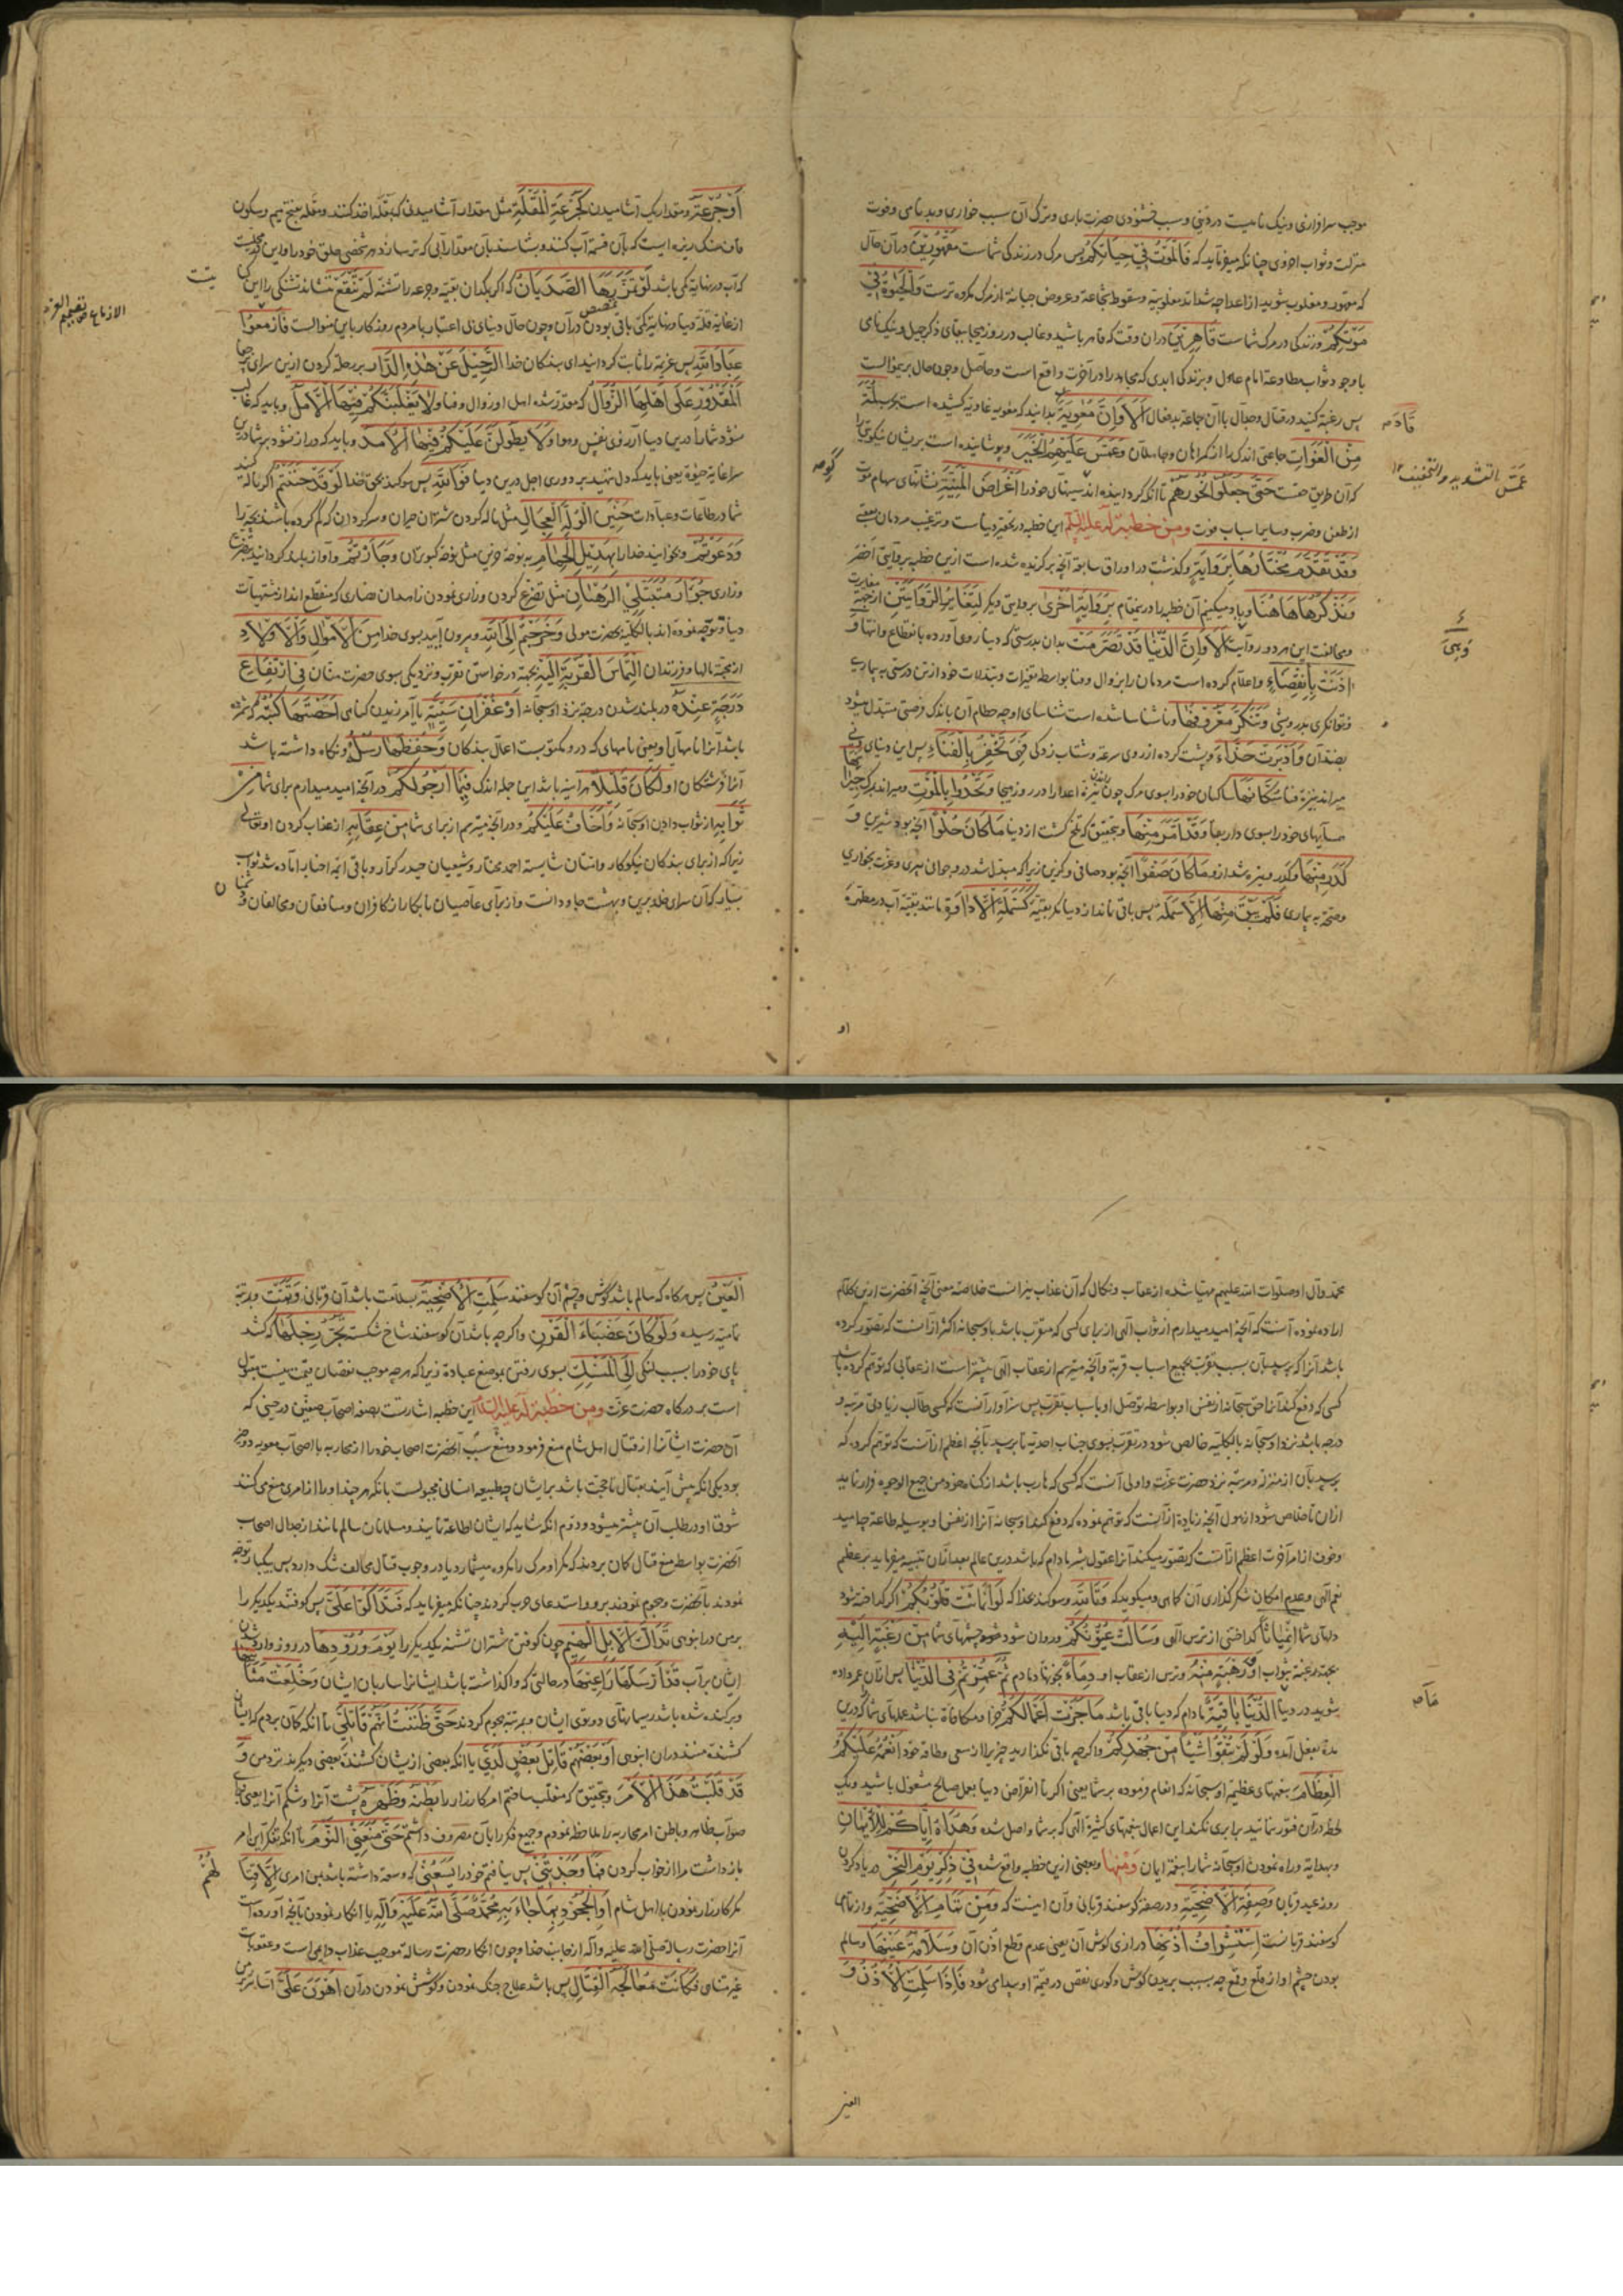 موجب سرافرازی و نیک نامیست در دنیی و سبب خشنودی حضرت باری و ترک آن سبب خواری و بدنامی و فوت
منزلت و ثواب اخروی چنانکه میفرماید که فَالْمَوْتُ فِي حَيَاتِكُمْ پس مرک در زندکی شماست مَقْهُورِينَ در آن حال
که مقهور و مغلوب شوید از اعدا چه شداید مغلوبیة و سقوط شجاعة و عروض جبانة از مرک مکروه ترست وَالْحَيٰوةُ فِي
مَوْتِكُمْ و زندکی در مرک شماست قَاهِرِينَ در ان وقت که قاهر باشید و غالب در روز هیجا ببقای ذکر جمیل و نیک نامی
با وجود ثواب مطاوعة امام عادل و بزندکی ابدی که مجاهد را در آخرت واقع است و حاصل وجون حال برینموالست
پس رغبة کنید در قتال و جدال با آن جماعة بدفعال اَلَا وَاِنَّ مُعٰوِيَةَ بدانید که معویه غاویه کشیده است لُمَّةً
مِنَ الْغُوَاتِ جماعتی اندک را از کمراهان و جاهلان وَعَمَسَ عَلَيْهِمُ الْخَبَرَ و پوشانیده است بریشان
قَادَ
عَمَسَ بالتشدید والتخفیف
حَتّٰى جَعَلُوا نُحُورَهُمْ تا آنکه کردانیده اند سینهای خود را اَغْرَاضَ الْمَنِيَّةِ نشانهای سهام موت
از طعن و ضرب و سایر اسباب فوت ومن خطبة له علیه السلام این خطبه در تحقیر دنیاست و ترغیب مردمان بعقبی
وَقَدْ تَقَدَّمَ مُخْتَارُهَا بِرِوَايَةٍ و کذشت در اوراق سابقه آنچه برکزیده شده است ازین خطبه بروایتی اخصر
وَنَذْكُرُهَا هَاهُنَا و یاد میکنیم آن خطبه را درینمقام بِرِوَايَةٍ اُخْرٰى بروایتی دیکر لِتَغَايُرِ الرِّوَايَتَيْنِ از جهة مغایرت
و مخالفت این هر دو روایت اَلَا وَاِنَّ الدُّنْيَا قَدْ تَصَرَّمَتْ بدان بدرستی که دنیا روی آورده بانقطاع و انتها وَ
اٰذَنَتْ بِانْقِضَاءٍ و اعلام کرده است مردمان را بزوال و فنا بواسطه تغیرات و تبدلات خود از تن درستی به بیماری
و توانکری بدرویشی وَتَنَكَّرَ مَعْرُوفُهَا و ناشناسا شده است شناسای او چه حطام آن باندک فرصتی متبدل میشود
بضد آن وَاَدْبَرَتْ حَذَّاءَ و پشت کرده از روی سرعة و شتاب زدکی فَهِيَ تَحْفِزُ بِالْفَنَاءِ پس این دنیای دنی
میراند بنیزه فنا سُكَّانَهَا ساکنان خود را بسوی مرک چون نیزه اعدا را در روز هیجا وَتَحْدُوا بِالْمَوْتِ و میراند بمرک جِيرَانَهَا
همسایهای خود را بسوی دار بقا وَقَدْ اَمَرَّ مِنْهَا و بتحقیق که تلخ کشت از دنیا مَا كَانَ حُلْوًا آنچه بود شیرین وَ
كَدُرَ مِنْهَا و کدر و تیره شد ازو مَا كَانَ صَفْوًا آنچه بود صافی و کزین زیرا که مبدل شد درو جوانی بپیری و عزت بخواری
و صحة به بیماری فَلَمْ يَبْقَ مِنْهَا اِلَّا سَمَلَةٌ پس باقی نماند از دنیا مکر بقیة كَسَمَلَةِ الْاِدَاوَةِ مانند بقیة آب در مطهره
او
اَوْ جُرْعَةٌ و مقدار یک آشامیدن كَجُرْعَةِ الْمَقْلَةِ مثل مقدار آشامیدنی که بمقله اخذ کنند و مقله بفتح میم و سکون
قاف سنک ریزه ایست که بآن قسمة آب کنند و بشناسند بآن مقدار آبی که تر سازد هر شخصی حلق خود را
که آب در نهایة کمی باشد لَوْ تَمَزَّزَهَا الصَّدْيَانُ که اکر بمکد ان بقیه و جرعه را تشنه لَمْ يَنْقَعْ ننشاند تشنکی را
از غایة قلة دنیا و نهایة کمی باقی بودن در آن و چون حال دنیای بی اعتبار با مردم روزکار باین منوالست فَاَزْمِعُوا
عِبَادَ اللّٰهِ پس عزیمة را ثابت کردانید ای بندکان خدا الرَّحِيلَ عَنْ هٰذِهِ الدَّارِ بر رحلة کردن ازین سرای
الْمَقْدُورِ عَلٰى اَهْلِهَا الزَّوَالُ که مقدر شده اهل او زوال و فنا وَلَا يَغْلِبَنَّكُمْ فِيهَا الْاَمَلُ و باید که غالب
نشود شما را درین دنیا آرزوی نفس و هوا وَلَا يَطُولَنَّ عَلَيْكُمْ فِيهَا الْاَمَدُ و باید که دراز نشود بر شما درین
سرا غایة حیوة یعنی باید که دل ننهید بر دوری اجل درین دنیا فَوَاللّٰهِ پس سوکند بحق خدا لَوْ حَنَنْتُمْ اکر ناله کنید
شما در طاعات و عبادات حَنِينَ الْوُلَّهِ الْعِجَالِ مثل ناله کردن شتران حیران و سرکردان که کم کرده باشند بچه را
وَدَعَوْتُمْ و بخوانید خدا را بِهَدِيلِ الْحَمَامِ به نوحه حزین مثل نوحه کبوتران وَجَاَرْتُمْ و آواز بلند کردانید بتضرع
و زاری جُؤَارَ مُتَبَتِّلِي الرُّهْبَانِ مثل تضرع کردن و زاری نمودن زاهدان نصاری که منقطع اند از مشتهیات
دنیا و توجه نموده اند بالکلیه بحضرت مولی وَخَرَجْتُمْ اِلَى اللّٰهِ و بیرون آیید بسوی خدا مِنَ الْاَمْوَالِ وَالْاَوْلَادِ
از جهة مالها و فرزندان الْتِمَاسَ الْقُرْبَةِ اِلَيْهِ بجهة درخواستن تقرب و نزدیکی بسوی حضرت منان فِي ارْتِفَاعِ
دَرَجَةٍ عِنْدَهُ در بلند شدن درجه نزد او سبحانه اَوْ غُفْرَانِ سَيِّئَةٍ یا آمرزیدن کناهی اَحْصَتْهَا كُتُبُهُ که شمرده
باشد آنرا نامهای او یعنی نامهای که درو مکتوبست اعمال بندکان وَحَفِظَهَا رُسُلُهُ و نکاه داشته باشد
آنرا فرشتکان او لَكَانَ قَلِيلًا هر اینه باشد این جمله اندک فِيمَا اَرْجُو لَكُمْ در آنچه امید میدارم برای شما مِنْ
ثَوَابِهِ از ثواب دادن او سبحانه وَاَخَافُ عَلَيْكُمْ و در آنچه میترسم از برای شما مِنْ عِقَابِهِ از عذاب کردن او تعالی
زیرا که از برای بندکان نیکوکار و امتنان شایسته احمد مختار و شیعیان حیدر کرار و باقی ائمه اخیار اماده شد ثواب
بسیار که آن سرای خلد برین و بهشت جاودانست و از برای عاصیان نابکار از کافران و منافقان و مخالفان
محمد وآل او صلوات الله علیهم مهیا شده از عقاب و نکال که آن عذاب نیرانست خلاصه معنی آنچه آنحضرت ازین کلام
اراده نموده آنست که آنچه امید میدارم از ثواب الهی از برای کسی که متقرب باشد باو سبحانه اکثر از آنست که تصور کرده
باشد آنرا که برسد بآن بسبب تقرب بجمیع اسباب قربة و آنچه میترسم از عقاب الهی بیشتر است از عقابی که توهم کرده باشد
کسی که دفع کند آنرا حق سبحانه از نفس او بواسطه توصل او باسباب تقرب پس سزاوار آنست که کسی طالب زیادتی مرتبه و
درجه باشد نزد او سبحانه بالکلیه خالص شود در تقرب بسوی جناب احدیة تا برسد بآنچه اعظم از آنست که توهم کرده که
برسد بآن از منزله و مرتبه نزد حضرت عزت و اولی آنست که کسی که هارب باشد از کناه خود من جمیع الوجوه فرار نماید
ازان تا خلاص شود از هول آنچه زیاده از آنست که توهم نموده که دفع کند او سبحانه آنرا از نفس او بوسیله طاعة
و خوف از امر آخرت اعظم از آنست که تصور میکند آنرا عقول بشر مادام که باشد درین عالم بعد از آن تنبیه میفرماید بر عظم
نعم الهی و عدم امکان شکر کذاری آن کماهی و میکوید که وَتَاللّٰهِ و سوکند بخدا که لَوِ انْمَاثَتْ قُلُوبُكُمْ اکر کداخته شود
دلهای شما انْمِيَاثًا کداختنی از ترس الهی وَسَالَتْ عُيُونُكُمْ و روان شود چشمهای شما مِنْ رَغْبَةٍ اِلَيْهِ
بجهة رغبة بثواب او وَرَهْبَةٍ مِنْهُ و ترس از عقاب او دَمًا خون دمادم ثُمَّ عُمِّرْتُمْ فِي الدُّنْيَا پس از آن عمر داده
شوید در دنیا مَا الدُّنْيَا بَاقِيَةٌ مادام که دنیا باقی باشد مَا جَزَتْ اَعْمَالُكُمْ جزا و مکافاة نباشد عملهای شما که درین
مدة بفعل آمده وَلَوْ لَمْ تُبْقُوا شَيْئًا مِنْ جُهْدِكُمْ و اکرچه باقی نکذارید چیزی را از سعی و طاقة خود اَنْعُمَهُ عَلَيْكُمُ
الْعِظَامَ نعمتهای عظیمه او سبحانه که انعام فرموده بر شما یعنی اکر تا انقراض دنیا بعمل صالح مشغول باشید و یک
لحظه در آن فتور ننمائید برابری نکند این اعمال بنعمتهای کثیره الهی که بر شما واصل شده وَهُدَاهُ اِيَّاكُمْ لِلْاِيمَانِ
و بهدایة و راه نمودن او سبحانه شما را بنعمة ایمان وَمِنْهَا و بعضی ازین خطبه واقع شده فِي ذِكْرِ يَوْمِ النَّحْرِ در یاد کردن
روز عید قربان وَصِفَةِ الْاُضْحِيَّةِ و در صفة کوسفند قربانی و آن اینست که وَمِنْ تَمَامِ الْاُضْحِيَّةِ و از تمامی
کوسفند قربانیست اسْتِشْرَافُ اُذُنِهَا درازی کوش آن یعنی عدم قطع اذن آن وَسَلَامَةُ عَيْنِهَا و سالم
بودن چشم او از قلع و قمع چه بسبب بریدن کوش و کوری نقص در قیمة او پیدا می شود فَاِذَا سَلِمَتِ الْاُذُنُ وَ
العین
الْعَيْنُ پس هرکاه که سالم باشد کوش و چشم آن کوسفند سَلِمَتِ الْاُضْحِيَّةُ بسلامت باشد آن قربانی وَتَمَّتْ و بمرتبه
تمامیة رسیده وَلَوْ كَانَ عَضْبَاءَ الْقَرْنِ و اکرچه باشد آن کوسفند شاخ شکسته تَجُرُّ رِجْلَهَا که کشد
پای خود را بسبب لنکی اِلَى الْمَنْسَكِ بسوی رفتن بموضع عبادة زیرا که هرچه موجب نقصان قیمت نیست مقبول
است بدرکاه حضرت عزت ومن خطبة له علیه السلام این خطبه اشارتست بصفة اصحاب صفین در حینی که
آن حضرت ایشانرا از قتال اهل شام منع فرمود و منع سبب آنحضرت اصحاب خود را از محاربه با اصحاب معویه دو چیز
بود یکی انکه پیش آیند بقتال تا حجت باشد بر ایشان چه طبیعه انسانی مجبولست بانکه هرچند او را از امری منع می کنند
شوق او در طلب آن بیشتر میشود و دوم انکه شاید که ایشان اطاعة نمایند و مسلمانان سالم مانند از جدال اصحاب
آنحضرت بواسطه منع قتال کمان بردند که مکر او مرک را مکروه میشمارد یا در وجوب قتال مخالف شک دارد پس بیکبار توجه
نمودند بآنحضرت و هجوم نمودند برو و استدعای حرب کردند چنانکه میفرماید که فَتَدَاكُّوا عَلَيَّ پس کوفتند یکدیکر را
بر من در انبوهی تَدَاكَّ الْاِبِلِ الْهِيمِ چون کوفتن شتران تشنه یکدیکر را يَوْمَ وُرُودِهَا در روز وارد شدن
ایشان بر آب قَدْ اَرْسَلَهَا رَاعِيهَا در حالتی که واکذاشته باشد ایشانرا ساربان ایشان وَخُلِعَتْ مَثَانِيهَا
و برکنده شده باشد ریسمانهای دوتوی ایشان و بمرتبه هجوم کردند حَتّٰى ظَنَنْتُ اَنَّهُمْ قَاتِلِيَّ تا آنکه کمان بردم که ایشان
کشنده منند در ان انبوهی اَوْ بَعْضُهُمْ قَاتِلُ بَعْضٍ لَدَيَّ یا انکه بعضی از یشان کشنده بعضی دیکرند نزد من وَ
قَدْ قَلَّبْتُ هٰذَا الْاَمْرَ و بتحقیق که منقلب ساختم امر کارزار را بَطْنَهُ وَظَهْرَهُ پشت آنرا و شکم آنرا یعنی
صواب ظاهر و باطن امر محاربه را ملاحظه نمودم و جمیع فکر را بآن مصروف داشتم حَتّٰى مَنَعَنِي النَّوْمَ تا انکه تفکر این امر
بازداشت مرا از خواب کردن فَمَا وَجَدْتُنِي پس نیافتم خود را يَسَعُنِي که وسعة داشته باشد بمن امری اِلَّا قِتَالُهُمْ
مکر کارزار نمودن با اهل شام اَوِ الْجُحُودُ بِمَا جَاءَ بِهِ مُحَمَّدٌ صَلَّى اللّٰهُ عَلَيْهِ وَآلِهِ یا انکار نمودن بآنچه آورده است
آنرا حضرت رسالة صلی الله علیه وآله از جانب خدا و چون انکار حضرت رسالة موجب عذاب دایمی است و عقوبات
غیر متناهی فَكَانَتْ مُعَالَجَةُ الْقِتَالِ پس باشد علاج جنک نمودن و کوشش نمودن در آن اَهْوَنَ عَلَيَّ آسانتر بر من